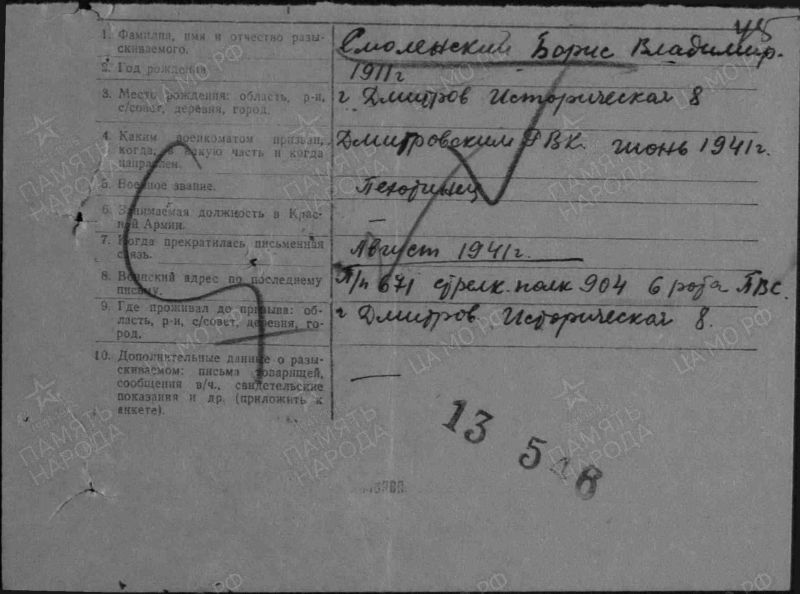 1. Фамилия, имя и отчество разы-
скиваемого.
Смоленский Борис Владимир.
2. Год рождения
1911г
3. Место рождения: область, р-н,
с/совет, деревня, город.
г Дмитров Историческая 8
4. Каким военкоматом призван,
когда, в какую часть и когда
направлен.
Дмитровским РВК. июнь 1941г.
5. Военное звание.
Пехотинец
6. Занимаемая должность в Крас-
ной Армии.
—
7. Когда прекратилась письменная
связь.
Август 1941г.
8. Воинский адрес по последнему
письму.
П/п 671 стрелк. полк 904 6 рота ПВС.
9. Где проживал до призыва: об-
ласть, р-н, с/совет, деревня, го-
род.
г Дмитров Историческая 8.
10. Дополнительные данные о разы-
скиваемом: письма товарищей,
сообщения в/ч., свидетельские
показания и др. (приложить к
анкете).
—
13 5
ПАМЯТЬ
НАРОДА
ЦА МО РФ